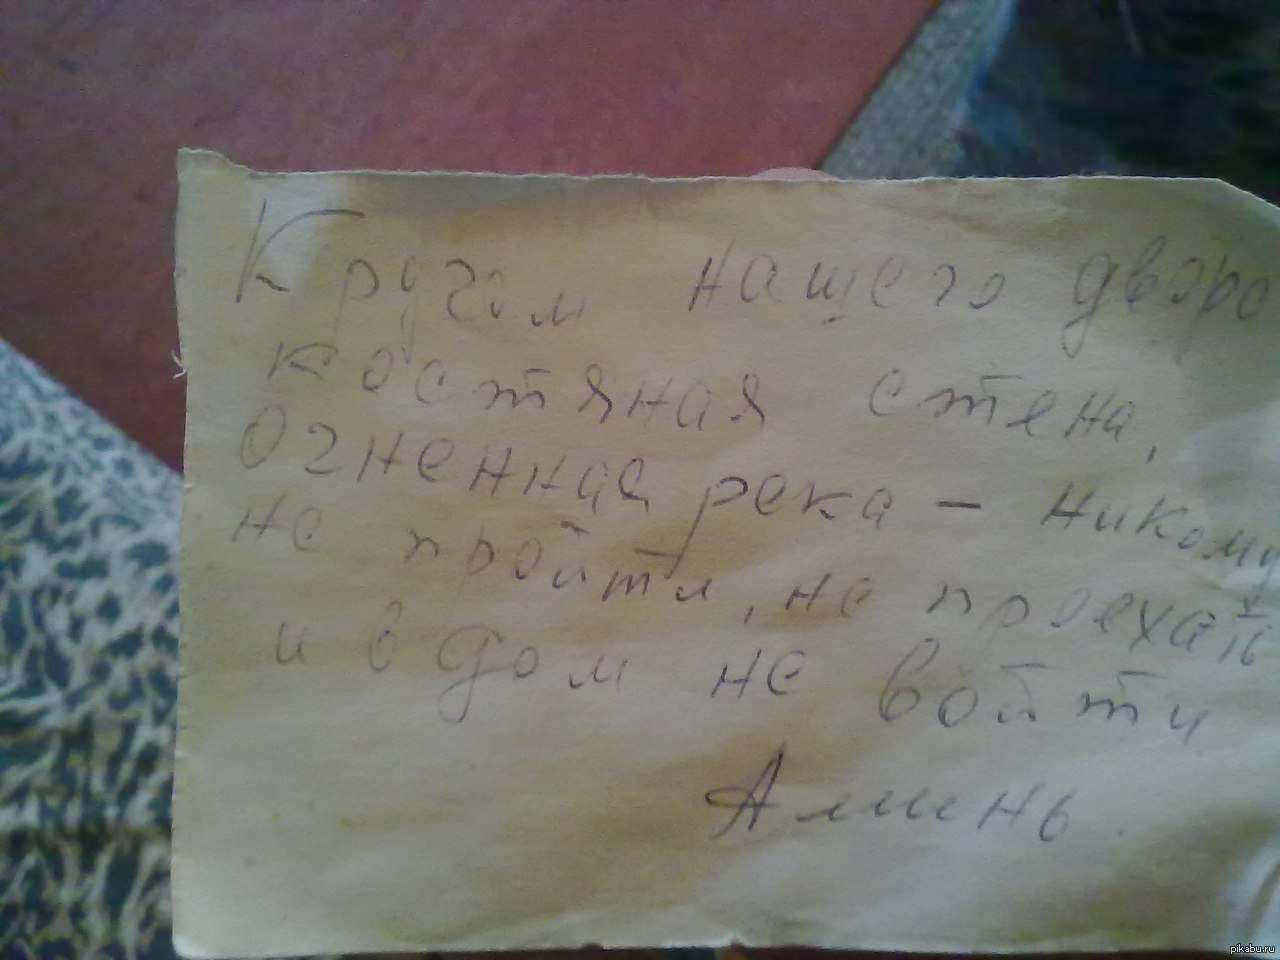 Кругом нашего двора
костяная стена,
Огненная река - никому
не пройти, не проехать
и в дом не войти
Аминь.
pikabu.ru